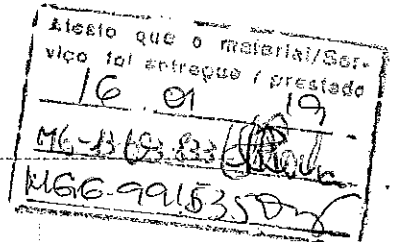 Atesto que o material/Ser-
viço foi entregue / prestado
16 01 19
MG-
MGG-991535